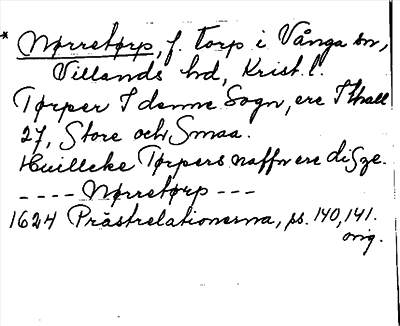 * Nørretørp, f. torp i Vånga sn,
Villands hd, Krist. l.
Tørper I denne Sogn, ere I thall
27, Store och Smaa.
Huillcke Tørpers naffn ere disze.
---- Nørretørp ---
1624 Prästrelationerna, ss. 140, 141.
orig.